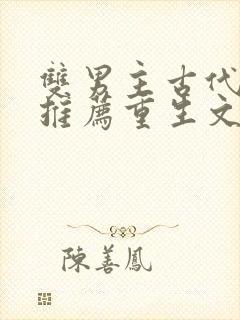 雙男主古代
推薦重生文
陳善鳳